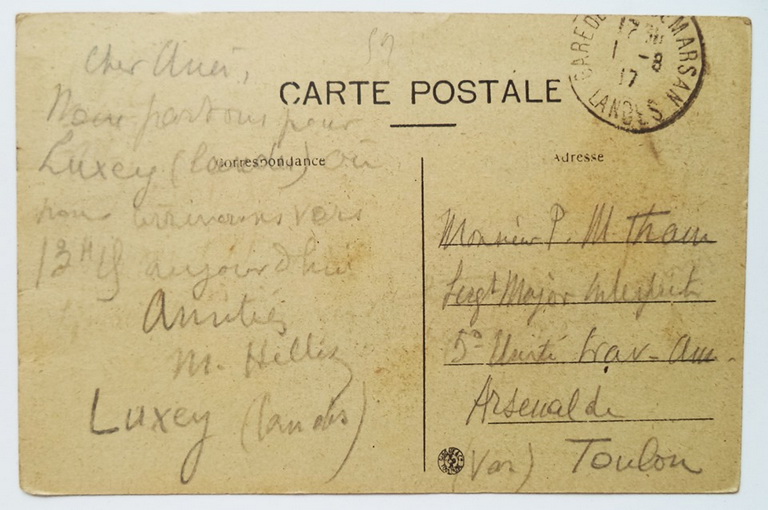 52
Cher Ami,
Nous partons pour
Luxey (Landes) où
nous arriverons vers
13H aujourd'hui
Amitiés
Luxey (Landes)
CARTE POSTALE
Correspondance
Adresse
GARE DE MARSAN
1 - 8
17
LANDES
Monsieur P. M. Tham
Sergt Major Interprète
5e Unité Trav - Am.
Arsenal de
(Var) Toulon